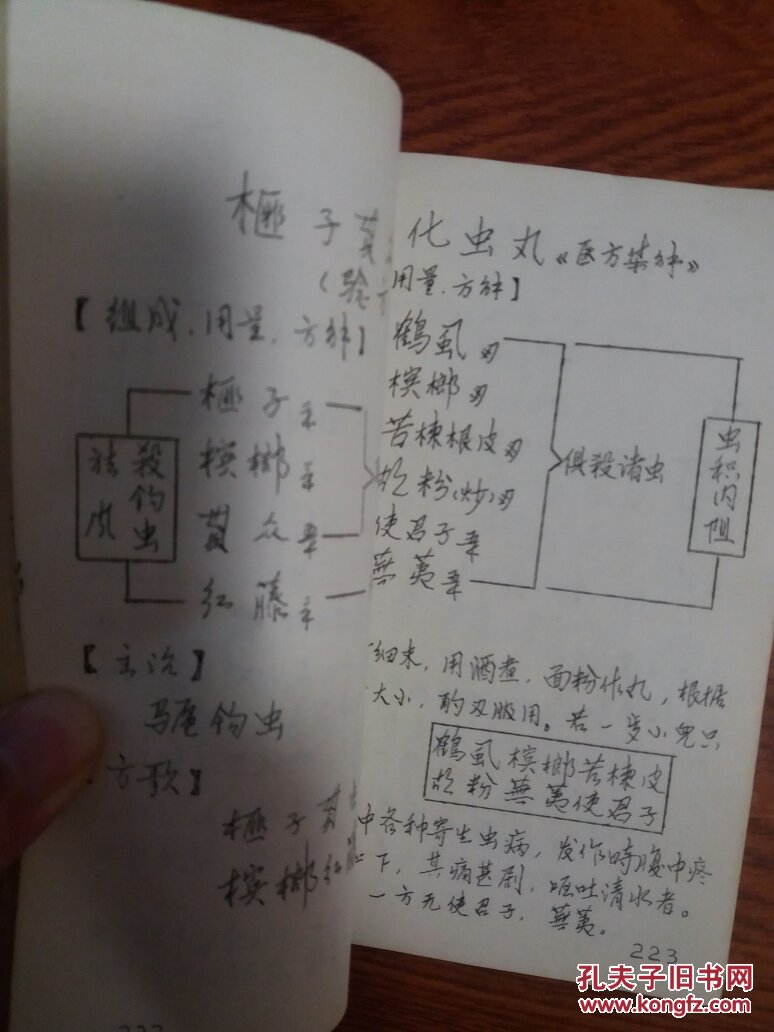 榧子贯
（验方
【组成.用量.方解】
榧子
槟榔
贯众
红藤
殺钩虫
祛风
【主治】
驱尾钩虫
方歌】
榧子贯
槟榔红藤
222
化虫丸《医方集解》
用量.方解】
鹤虱
槟榔
苦楝根皮
胡粉(炒)
使君子
蕪荑
俱殺诸虫
虫积内阻
细末，用酒煮，面粉作丸，根据
大小，酌叉服用。若一岁小兒只
鹤虱槟榔苦楝皮
胡粉蕪荑使君子
中各种寄生虫病，发作時腹中疼
下，其痛甚剧，呕吐清水者。
一方无使君子，蕪荑。
223
孔夫子旧书网
www.kongfz.com